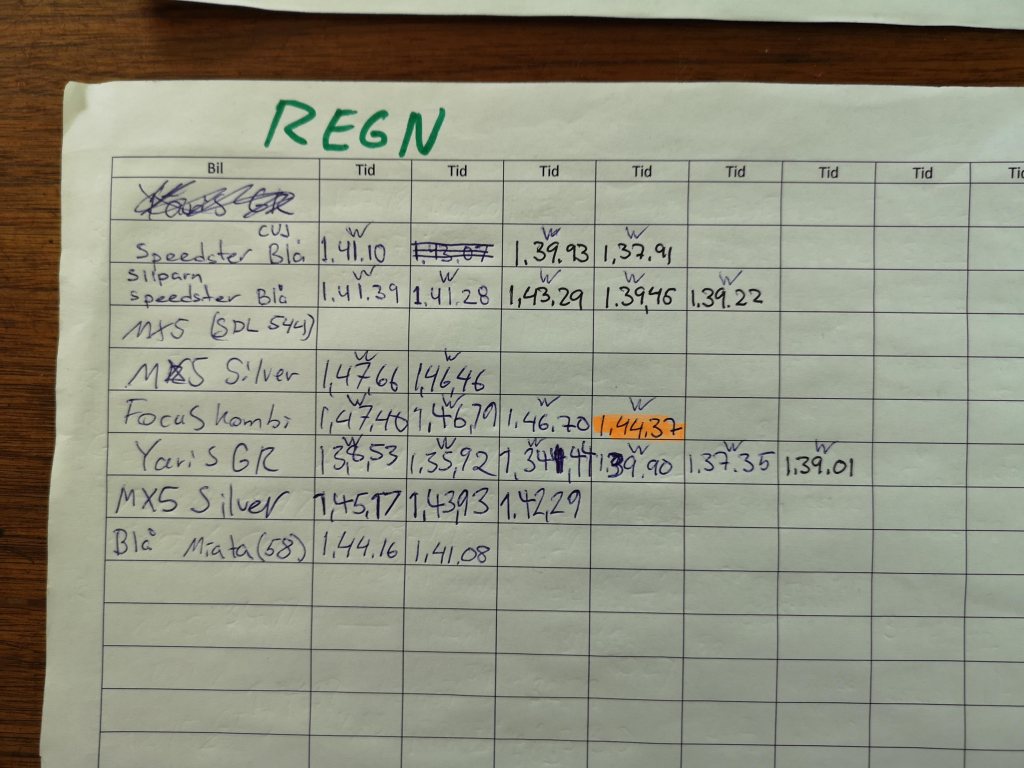 REGN
Bil Tid Tid Tid Tid Tid Tid Tid
Yaris GR
CUJ
Speedster Blå 1.41.10 1,43.07 1.39.93 1,37.91
W W W
Silparn
Speedster Blå 1.41.39 1,41.28 1,43,29 1.39,45 1.39.22
W W W W W
MX5 (SDL 544)
MX5 Silver 1,47,66 1,46,46
W W
Focus Kombi 1,47,40 1,46,79 1,46.70 1,44,37
W W W W
Yaris GR 1 38,53 1,35,92 1,39.90 1.37.35 1.39.01
W W W W W W
MX5 Silver 1,45,17 1,43,93 1.42,29
Blå Miata (58) 1,44.16 1,41,08